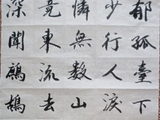 郁孤臺下
少行人淚
憐無數山
竟東流去
深聞鷓鴣